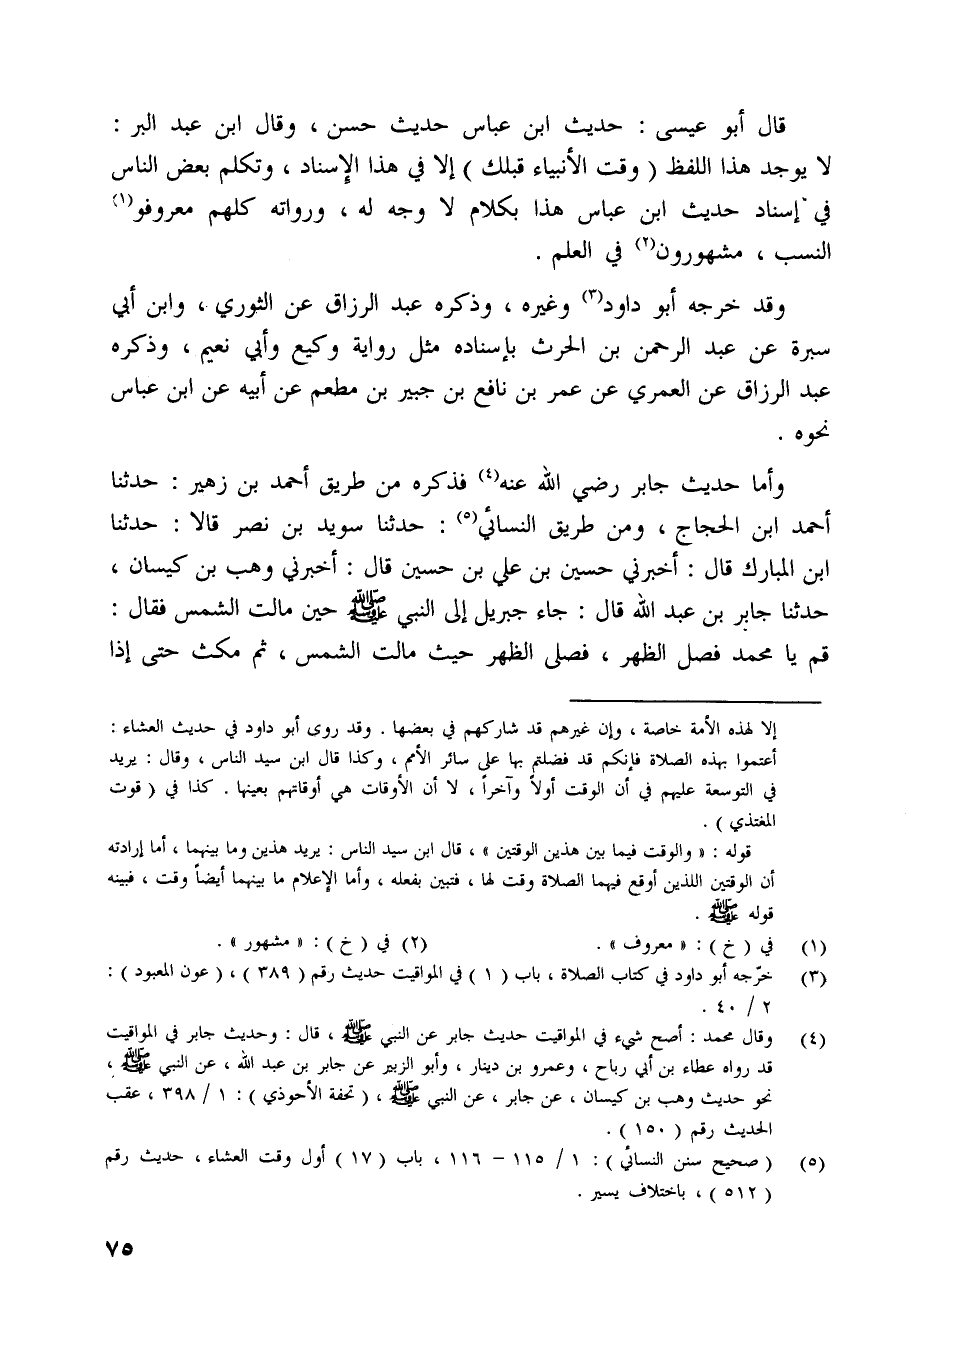 قال أبو عيسى : حديث ابن عباس حديث حسن ، وقال ابن عبد البر :
لا يوجد هذا اللفظ ( وقت الأنبياء قبلك ) إلا في هذا الإسناد ، وتكلم بعض الناس
في إسناد حديث ابن عباس هذا بكلام لا وجه له ، ورواته كلهم معروفو(١)
النسب ، مشهورون(٢) في العلم .
وقد خرجه أبو داود(٣) وغيره ، وذكره عبد الرزاق عن الثوري ، وابن أبي
سبرة عن عبد الرحمن بن الحرث بإسناده مثل رواية وكيع وأبي نعيم ، وذكره
عبد الرزاق عن العمري عن عمر بن نافع بن جبير بن مطعم عن أبيه عن ابن عباس
نحوه .
وأما حديث جابر رضي الله عنه(٤) فذكره من طريق أحمد بن زهير : حدثنا
أحمد ابن الحجاج ، ومن طريق النسائي(٥) : حدثنا سويد بن نصر قالا : حدثنا
ابن المبارك قال : أخبرني حسين بن علي بن حسين قال : أخبرني وهب بن كيسان ،
حدثنا جابر بن عبد الله قال : جاء جبريل إلى النبي ﷺ حين مالت الشمس فقال :
قم يا محمد فصل الظهر ، فصلى الظهر حيث مالت الشمس ، ثم مكث حتى إذا
إلا لهذه الأمة خاصة ، وإن غيرهم قد شاركهم في بعضها . وقد روى أبو داود في حديث العشاء :
أعتموا بهذه الصلاة فإنكم قد فضلتم بها على سائر الأمم ، وكذا قال ابن سيد الناس ، وقال : يريد
في التوسعة عليهم في أن الوقت أولاً وآخراً ، لا أن الأوقات هي أوقاتهم بعينها . كذا في ( قوت
المغتذي ) .
قوله : « والوقت فيما بين هذين الوقتين » ، قال ابن سيد الناس : يريد هذين وما بينهما ، أما إرادته
أن الوقتين اللذين أوقع فيهما الصلاة وقت لها ، فتبين بفعله ، وأما الإعلام ما بينهما أيضاً وقت ، فبينه
قوله ﷺ .
(١) في ( خ ) : « معروف » . (٢) في ( خ ) : « مشهور » .
(٣) خرّجه أبو داود في كتاب الصلاة ، باب ( ١ ) في المواقيت حديث رقم ( ٣٨٩ ) ، ( عون المعبود ) :
٢ / ٤٠ .
(٤) وقال محمد : أصح شيء في المواقيت حديث جابر عن النبي ﷺ ، قال : وحديث جابر في المواقيت
قد رواه عطاء بن أبي رباح ، وعمرو بن دينار ، وأبو الزبير عن جابر بن عبد الله ، عن النبي ﷺ ،
نحو حديث وهب بن كيسان ، عن جابر ، عن النبي ﷺ ، ( تحفة الأحوذي ) : ١ / ٣٩٨ ، عقب
الحديث رقم ( ١٥٠ ) .
(٥) ( صحيح سنن النسائي ) : ١ / ١١٥ – ١١٦ ، باب ( ١٧ ) أول وقت العشاء ، حديث رقم
( ٥١٢ ) ، باختلاف يسير .
٧٥